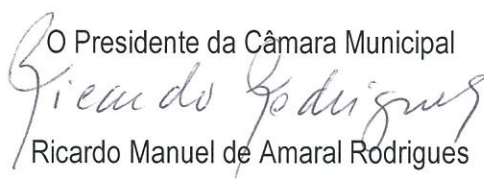 O Presidente da Câmara Municipal
Ricardo Rodrigues
Ricardo Manuel de Amaral Rodrigues